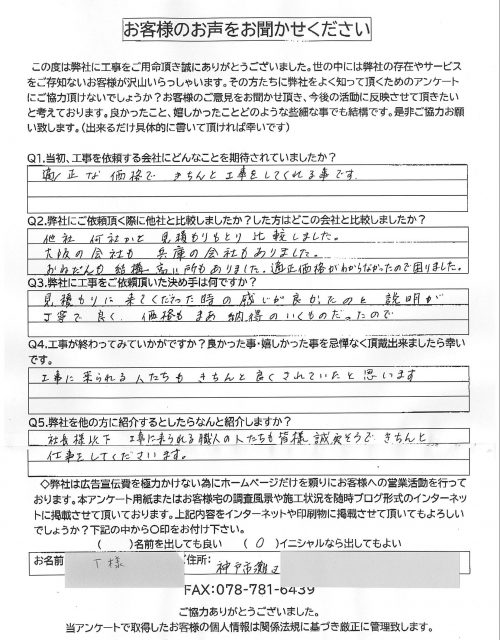 お客様のお声をお聞かせください
この度は弊社に工事をご用命頂き誠にありがとうございました。世の中には弊社の存在やサービス
をご存知ないお客様が沢山いらっしゃいます。その方たちに弊社をよく知って頂くためのアンケート
にご協力頂けないでしょうか?お客様のご意見をお聞かせ頂き、今後の活動に反映させて頂きたい
と考えております。良かったこと、嬉しかったことどのような些細な事でも結構です。是非ご協力お願
い致します。(出来るだけ具体的に書いて頂ければ幸いです)
Q1.当初、工事を依頼する会社にどんなことを期待されていましたか?
適正な価格で きちんと工事をしてくれる事です。
Q2.弊社にご依頼頂く際に他社と比較しましたか?した方はどこの会社と比較しましたか?
他社 何社かと 見積もりもとり 比較しました。
大阪の会社も 兵庫の会社もありました。
おねだんも 結構 高い所もありました。適正価格がわからなかったので困りました。
Q3.弊社に工事をご依頼頂いた決め手は何ですか?
見積もりに 来てくださった時の感じが良かったのと 説明が
丁寧で良く、価格も まあ 納得のいくものだったので
Q4.工事が終わってみていかがですか?良かった事・嬉しかった事を忌憚なく頂戴出来ましたら幸い
です。
工事に来られる人たちも きちんと良くされていたと思います
Q5.弊社を他の方に紹介するとしたらなんと紹介しますか?
社長様以下 工事に来られる職人の人たちも皆様 誠実そうで きちんと
仕事をしてくださいます。
◇弊社は広告宣伝費を極力かけない為にホームページだけを頼りにお客様への営業活動を行って
おります。本アンケート用紙またはお客様宅の調査風景や施工状況を随時ブログ形式のインターネッ
トに掲載させて頂いております。上記内容をインターネットや印刷物に掲載させて頂いてもよろしい
でしょうか?下記の中から○印をお付け下さい。
( )名前を出しても良い ( O )イニシャルなら出してもよい
お名前 T様 ご住所: 神戸市灘区
FAX:078-781-6439
ご協力ありがとうございました。
当アンケートで取得したお客様の個人情報は関係法規に基づき厳正に管理致します。